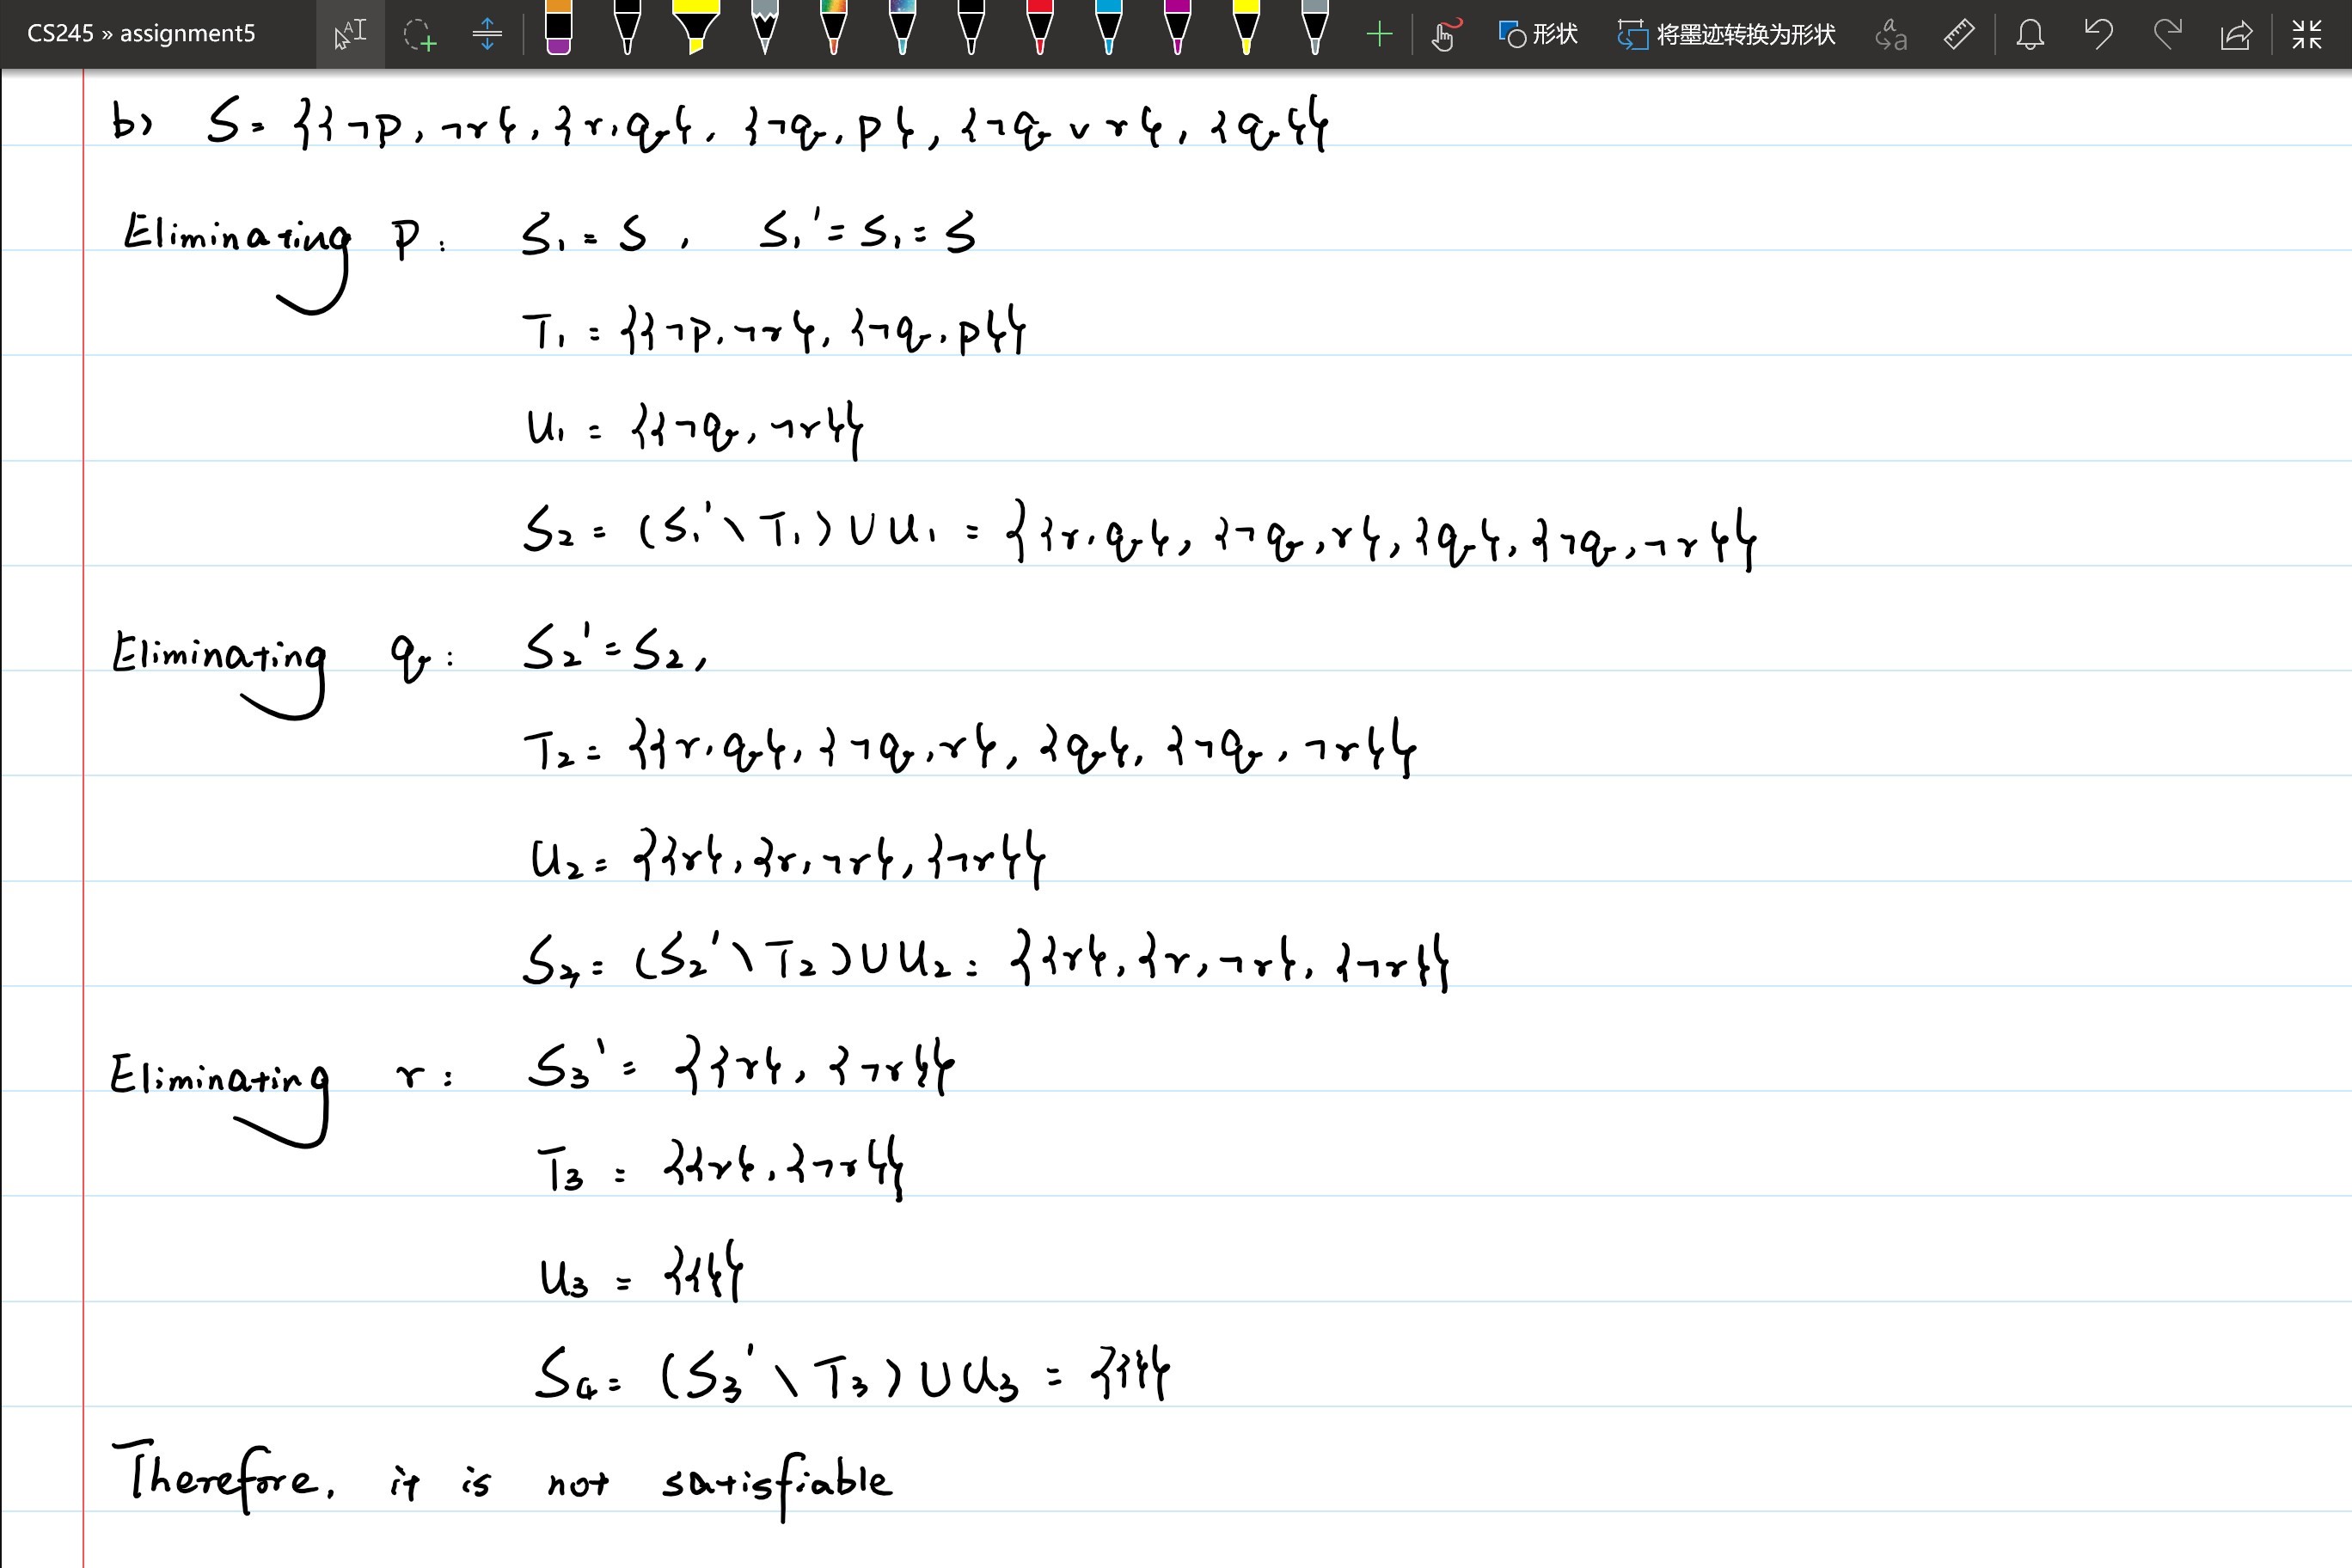 CS245 » assignment5
形状
将墨迹转换为形状
b) S = {{¬p, ¬r}, {r, q}, {¬q, p}, {¬q ∨ r}, {q}}
Eliminating p: S₁ = S, S₁' = S₁ = S
T₁ = {{¬p, ¬r}, {¬q, p}}
U₁ = {{¬q, ¬r}}
S₂ = (S₁' \ T₁) ∪ U₁ = {{r, q}, {¬q, r}, {q}, {¬q, ¬r}}
Eliminating q: S₂' = S₂,
T₂ = {{r, q}, {¬q, r}, {q}, {¬q, ¬r}}
U₂ = {{r}, {r, ¬r}, {¬r}}
S₃ = (S₂' \ T₂) ∪ U₂ = {{r}, {r, ¬r}, {¬r}}
Eliminating r: S₃' = {{r}, {¬r}}
T₃ = {{r}, {¬r}}
U₃ = {{}}
S₄ = (S₃' \ T₃) ∪ U₃ = {{}}
Therefore, it is not satisfiable